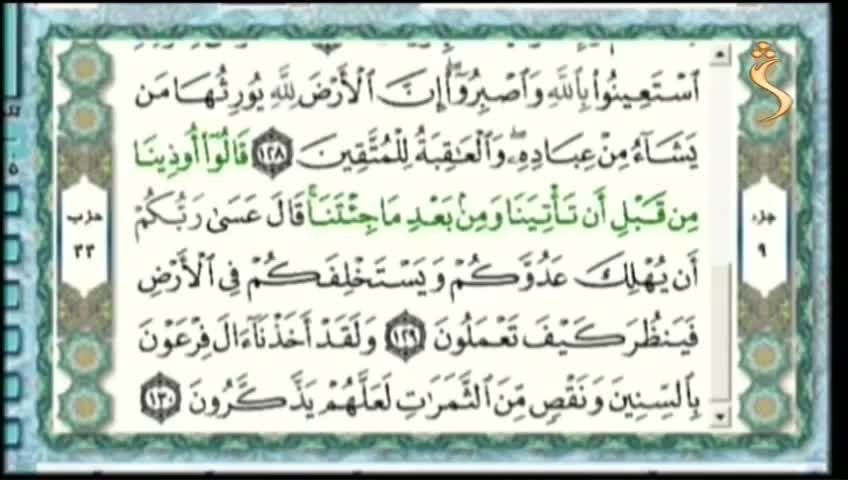 ٱسۡتَعِينُواْ بِٱللَّهِ وَٱصۡبِرُوٓاْۖ إِنَّ ٱلۡأَرۡضَ لِلَّهِ يُورِثُهَا مَن
يَشَآءُ مِنۡ عِبَادِهِۦۖ وَٱلۡعَٰقِبَةُ لِلۡمُتَّقِينَ ١٢٨ قَالُوٓاْ أُوذِينَا
مِن قَبۡلِ أَن تَأۡتِيَنَا وَمِنۢ بَعۡدِ مَا جِئۡتَنَاۚ قَالَ عَسَىٰ رَبُّكُمۡ
أَن يُهۡلِكَ عَدُوَّكُمۡ وَيَسۡتَخۡلِفَكُمۡ فِي ٱلۡأَرۡضِ
فَيَنظُرَ كَيۡفَ تَعۡمَلُونَ ١٢٩ وَلَقَدۡ أَخَذۡنَآ ءَالَ فِرۡعَوۡنَ
بِٱلسِّنِينَ وَنَقۡصٖ مِّنَ ٱلثَّمَرَٰتِ لَعَلَّهُمۡ يَذَّكَّرُونَ ١٣٠
جزء
٩
حزب
٣٣